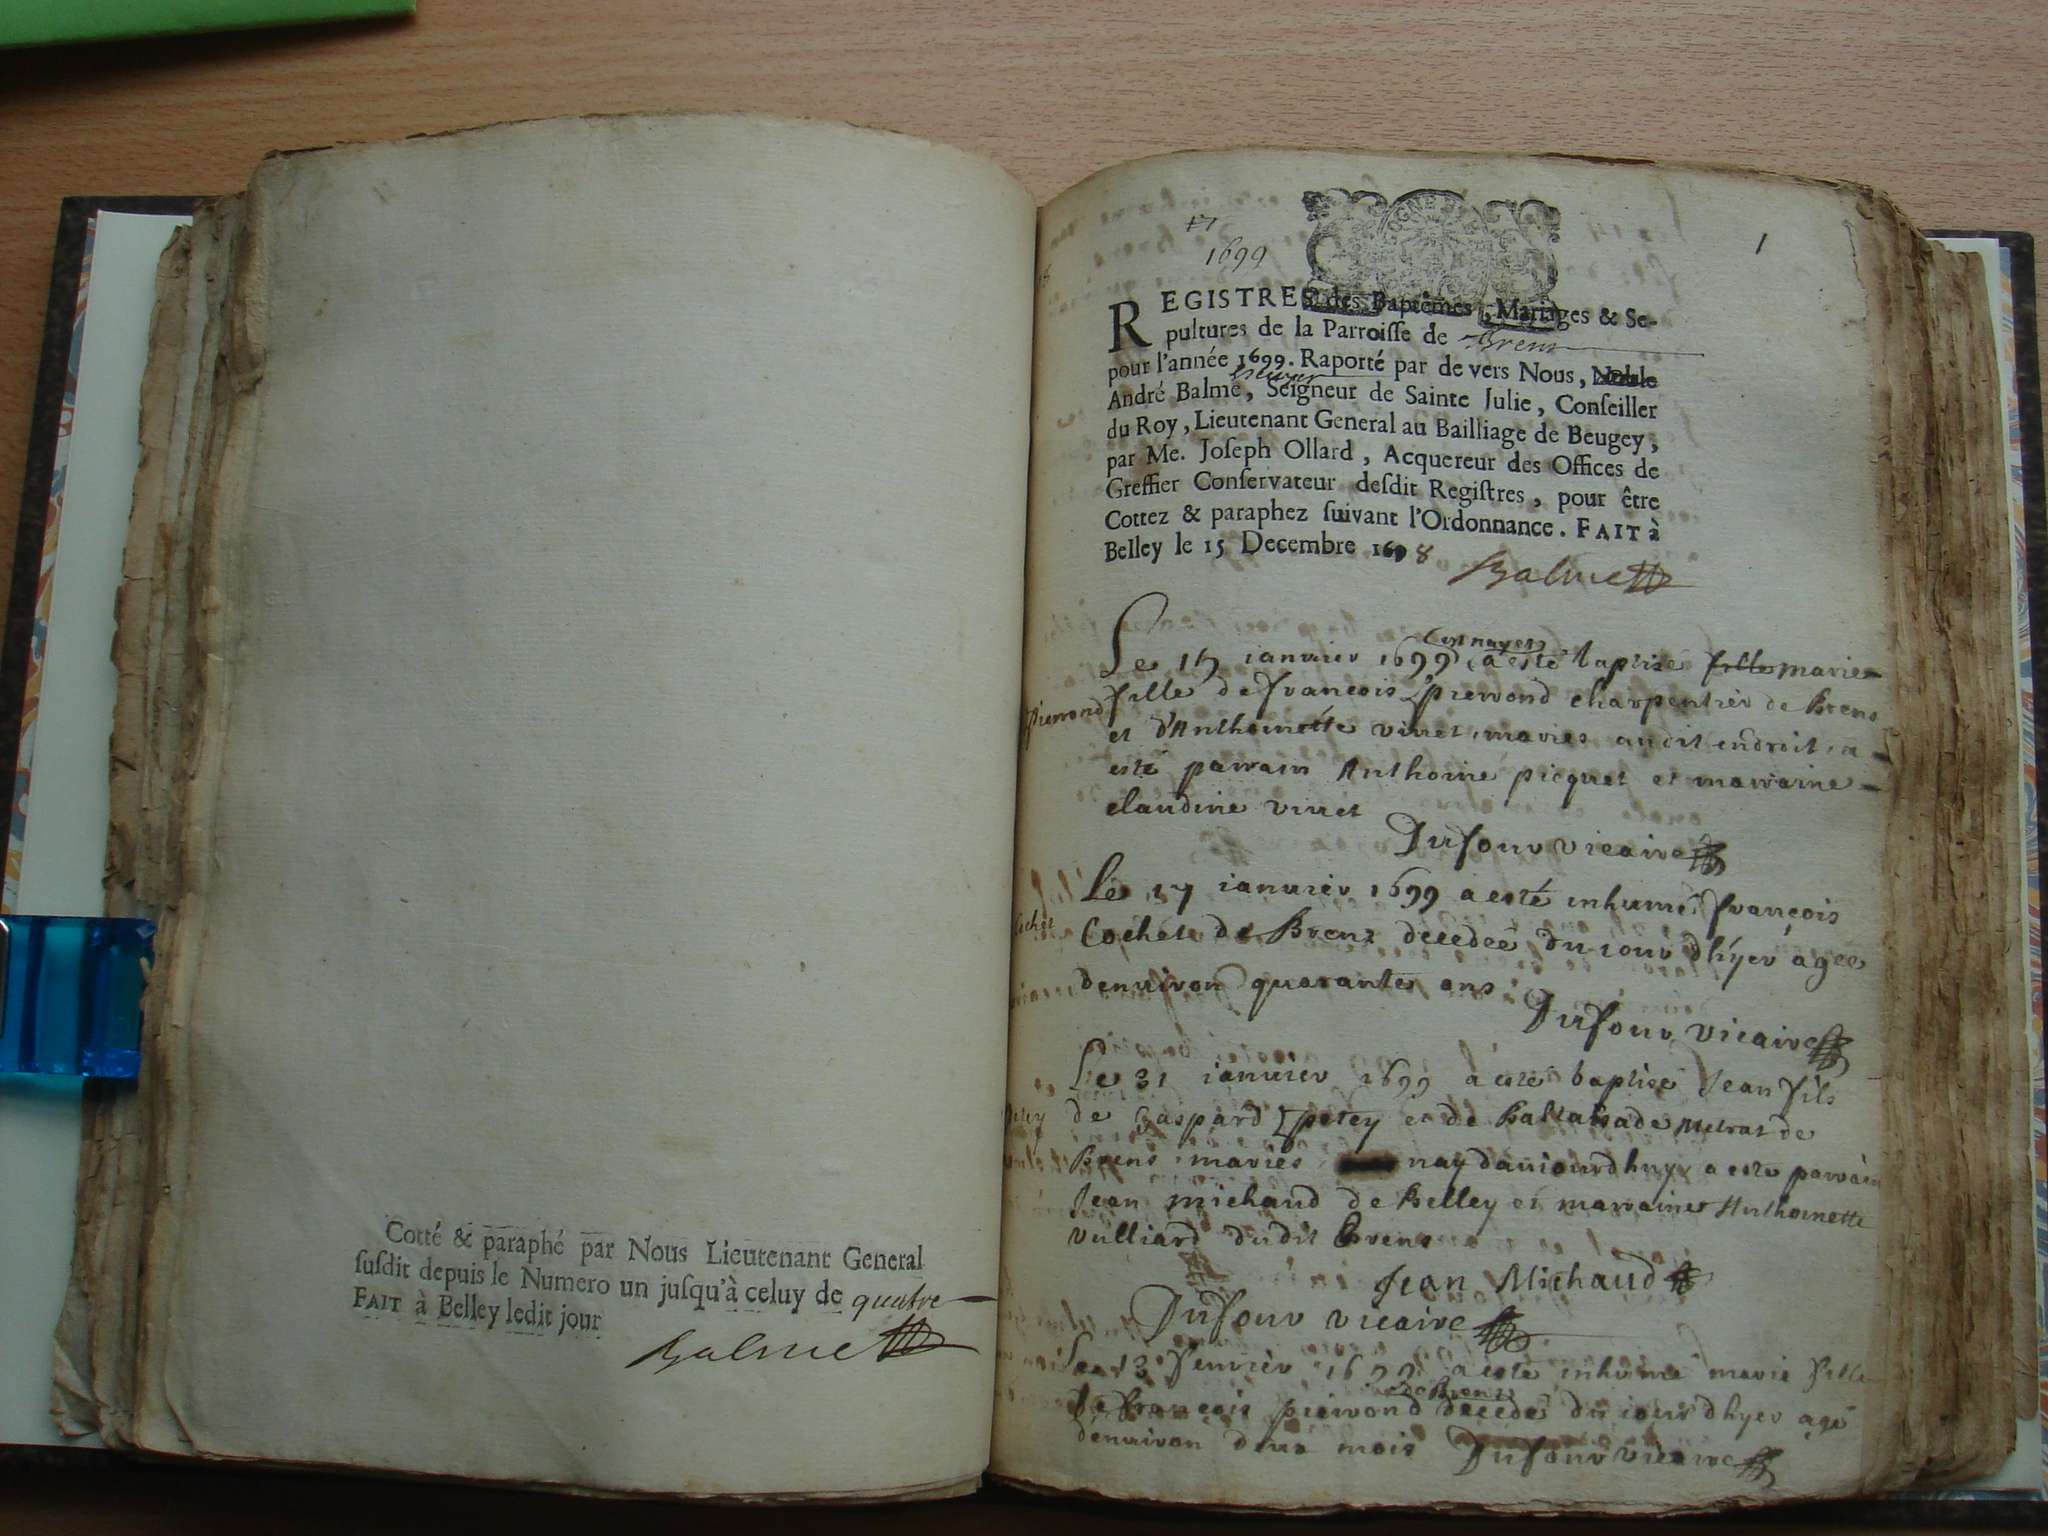 Cotté & paraphé par Nous Lieutenant General
susdit depuis le Numero un jusqu'à celuy de quatre
FAIT à Belley ledit jour
Balme
17
1699
1
REGISTRES des Baptêmes, Mariages & Se-
pultures de la Parroisse de Brens
pour l'année 1699. Raporté par de vers Nous, Noble
escuyer
André Balme, Seigneur de Sainte Julie, Conseiller
du Roy, Lieutenant General au Bailliage de Beugey,
par Me. Joseph Ollard, Acquereur des Offices de
Greffier Conservateur desdit Registres, pour être
Cottez & paraphez suivant l'Ordonnance. FAIT à
Belley le 15 Decembre 1698
Balme
Le 15 ianvier 1699 a esté baptisé fille marie
Pierrond
fille de francois pierrond charpentier de Brens
et d'Anthoinette vinet, mariés audit endroit, a
esté parrain Anthoine picquet et marraine
claudine vinet
Dufour vicaire
Le 17 ianvier 1699 a esté inhumé françois
Cochet
Cochet de Brens decedeé du iour d'hyer agee
denuiron quarante ans
Dufour vicaire
Le 31 ianvier 1699 a esté baptisé Jean fils
petey
de Gaspard petey et de Baltasade Melrat de
Brens mariés nay dauiourdhuy a esté parrain
Jean michaud de Belley et marraine Anthoinette
vulliard dudit Brens
Jean Michaud
Dufour vicaire
Le 13 feuvrier 1699 a esté inhumé marie fille
de Brens
de francois pierrond decedé du iour dhyer agé
denuiron deux mois Dufour vicaire